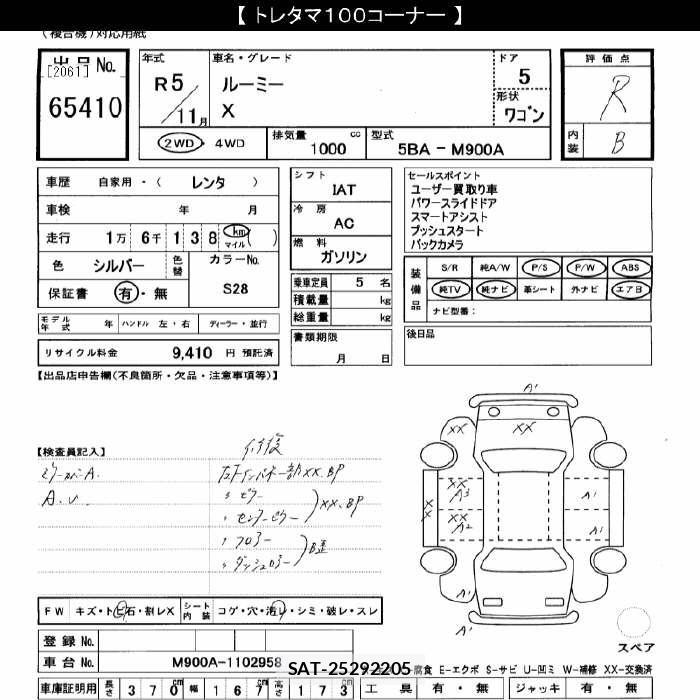 【 トレタマ100コーナー 】
(複合機)対応用紙
出品No.
[2061]
65410
年式
R5/11月
車名・グレード
ルーミー
X
ドア
5
形状
ワゴン
評価点
R
内装
B
2WD・4WD
排気量 cc
1000
型式
5BA - M900A
車歴 自家用・( レンタ )
車検 年 月
走行 1万 6千 1 3 8 km マイル ( )
色 シルバー 色替 カラーNo.
保証書 有・無 S28
モデル年式 年 ハンドル 左・右 ディーラー・並行
リサイクル料金 9,410 円 預託済
シフト
IAT
冷房
AC
燃料
ガソリン
乗車定員 5 名
積載量 kg
総重量 kg
書類期限
月 日
セールスポイント
ユーザー買取り車
パワースライドドア
スマートアシスト
プッシュスタート
バックカメラ
装備品
S/R 純A/W P/S P/W ABS
純TV 純ナビ 革シート 外ナビ エアB
ナビ型番:
後日品
【出品店申告欄(不良箇所・欠品・注意事項等)】
【検査員記入】
A.U.
XX.BP
ピラー
センターピラー
XX.BP
フロアー
ダッシュロアー
A1
XX
XX
XX
XX
A3
XX
A2
A1
A1
A1
A1
スペア
FW キズ・トビ石・割レX シート内装 コゲ・穴・汚レ・シミ・破レ・スレ
登録No.
車台No. M900A-1102958
SAT-25292205
腐食 E-エクボ S-サビ U-凹ミ W-補修 XX-交換済
車庫証明用 長さ 370cm 幅 167cm 高さ 173cm
工具 有・無 ジャッキ 有・無